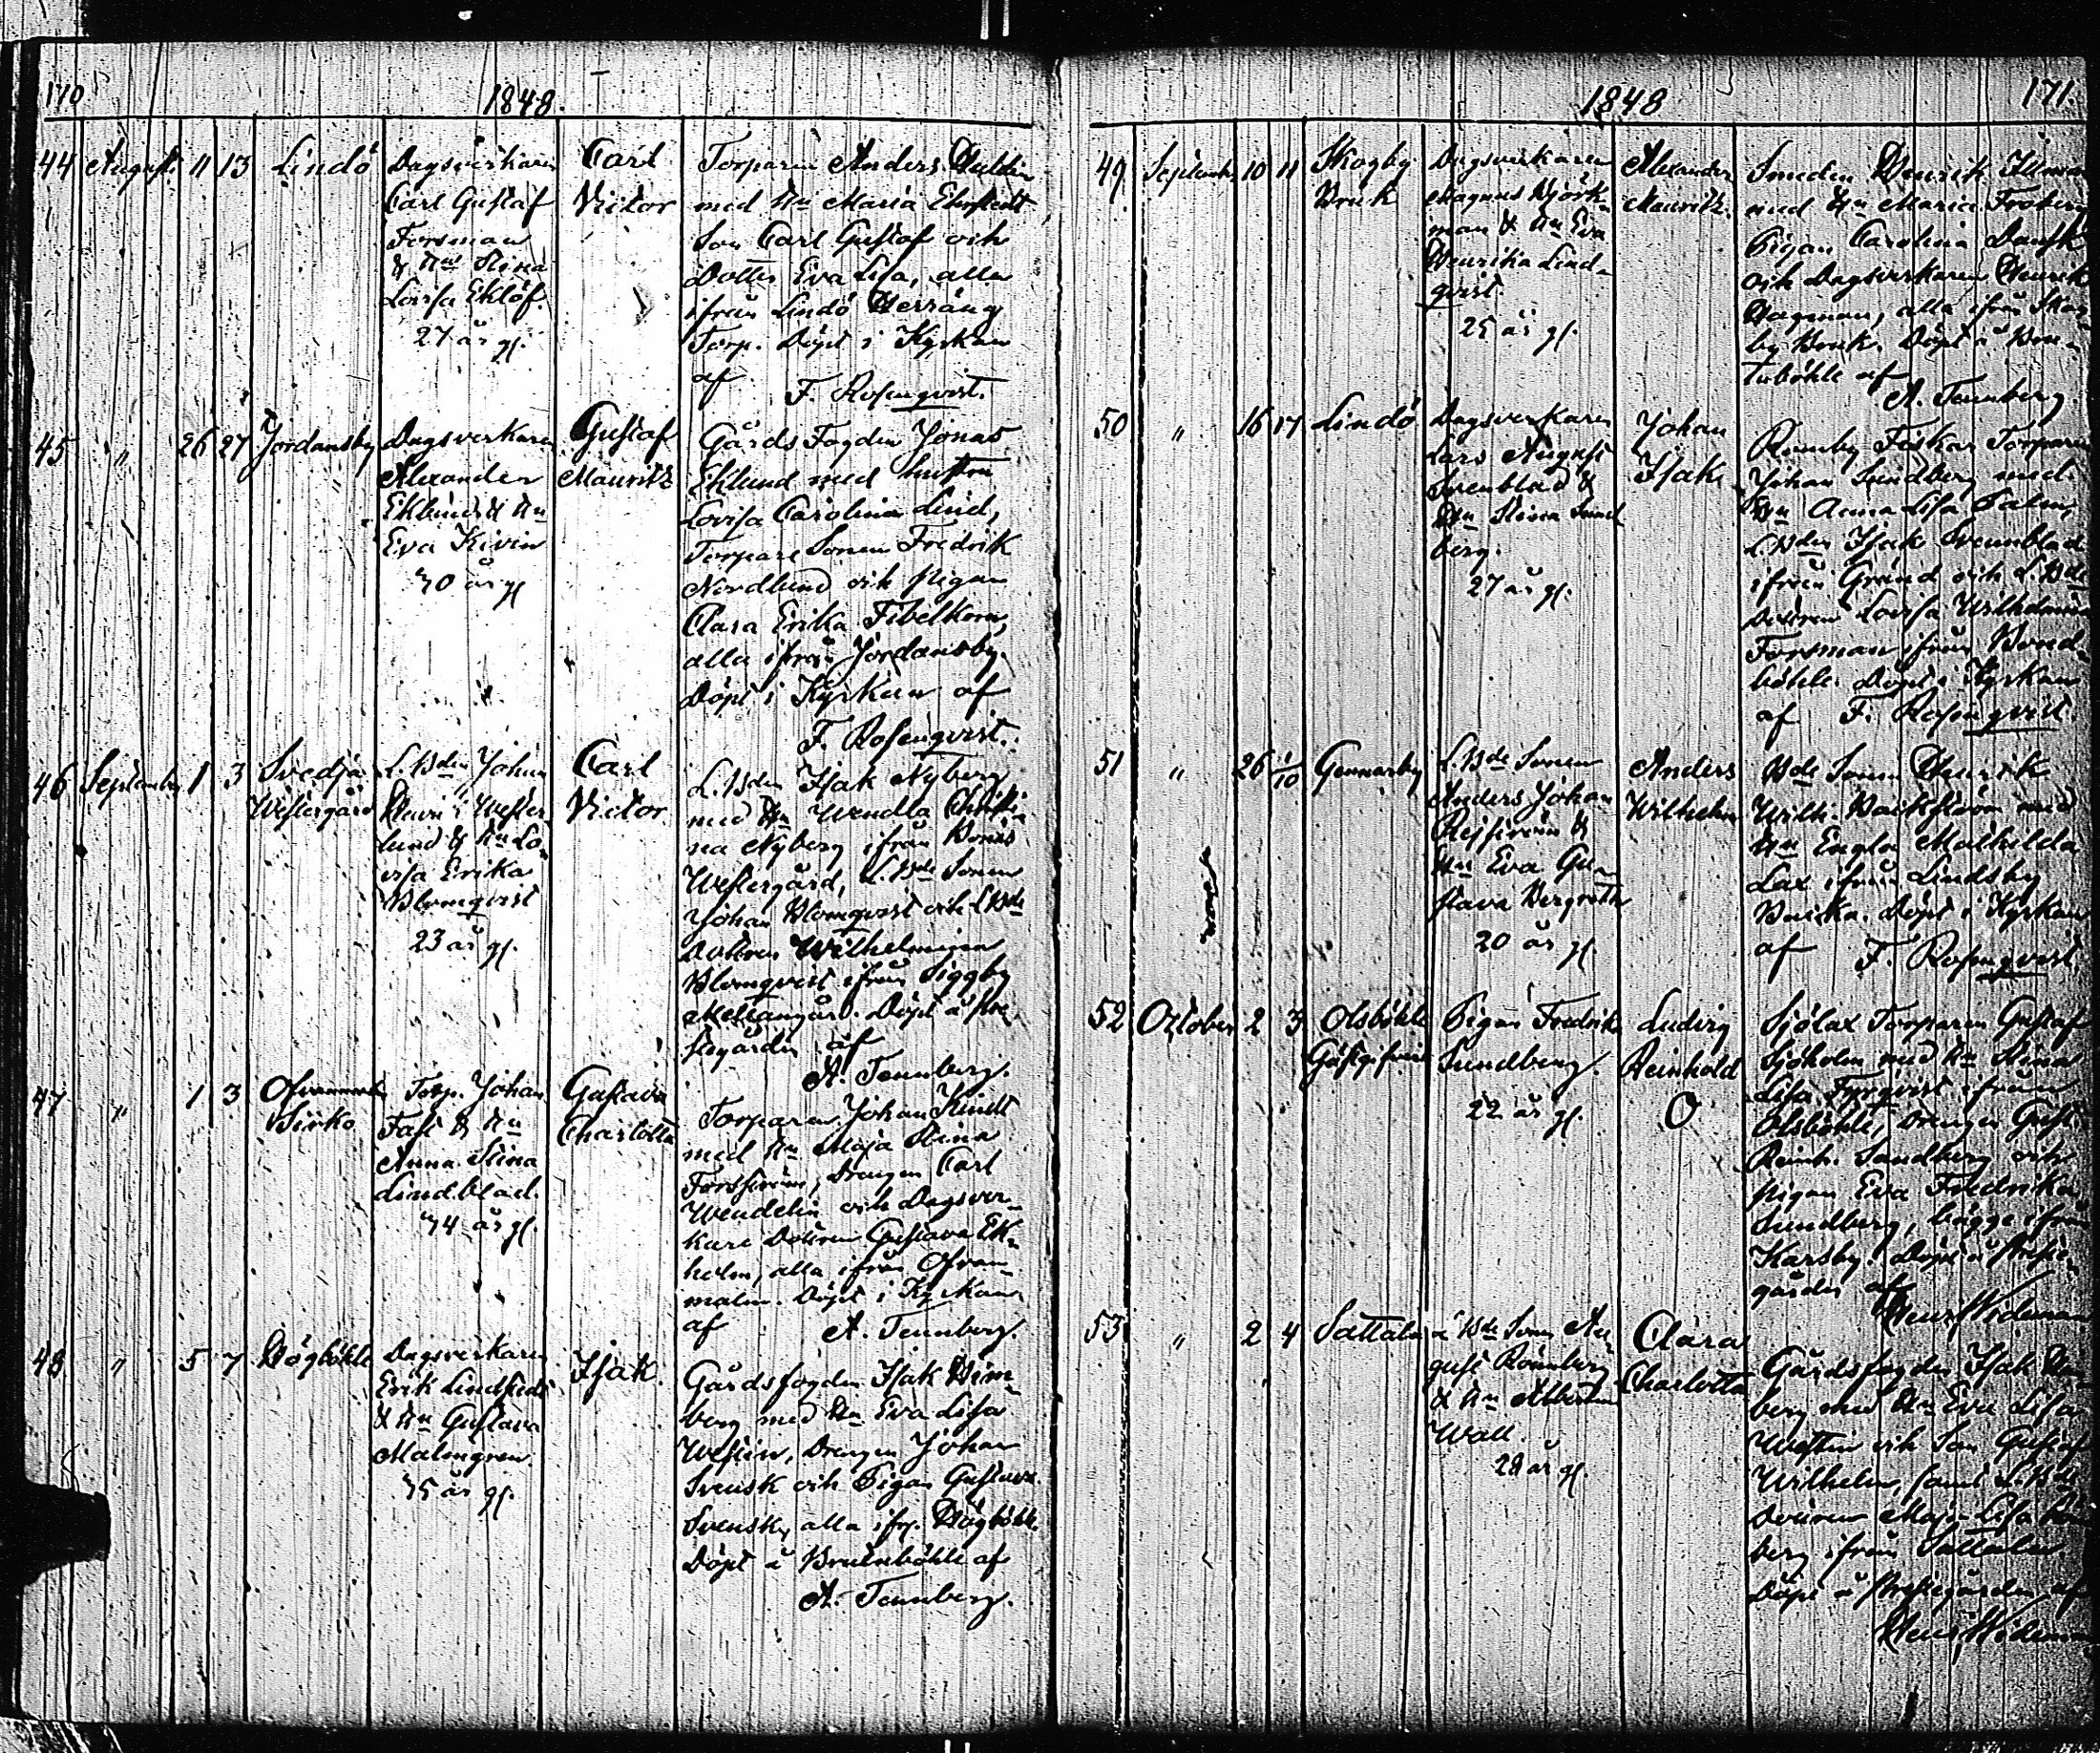 170
1848.
44 August 11 13 Lindö
Dagsverkaren
Carl Gustaf
Forsman
& Hu Stina
Lovisa Eklöf.
27 år gl.
Carl
Victor
Torparen Anders
med Hu Maria
Son Carl Gustaf och
Dotter Eva Lisa, alla
ifrån Lindö Herräng
Torp. Döpt i Kyrkan
af F. Rosenqvist.
45 " 26 27 Jordansby
Dagsverkaren
Alexander
Eklund & Hu
Eva Kivin
40 år gl
Gustaf
Mauritz
Gårds Fogden Jonas
Eklund med hustru
Lovisa Carolina Lind,
Torpare Sonen Fredrik
Nordlund och pigan
Clara Erika Fibelkorn,
alla ifrån Jordansby.
Döpt i Kyrkan af
F. Rosenqvist.
46 September 1 3 Svedja
Westergård
L. Bden Johan
Wester-
lund & Hu Lo-
visa Erika
Blomqvist
23 år gl.
Carl
Victor
L. Bden Isak Nyberg
med Hu Wendla Christi-
na Nyberg ifrån
Westergård, L. Bde Sonen
Johan Blomqvist och L Bde
Dottren Wilhelmina
Blomqvist ifrån Siggby
Mellangård. Döpt å Pre-
stgården af
A. Tennberg.
47 " 1 3 Ofvanmalm
Sirko
Torp. Johan
Fast & Hu
Anna Stina
Lindblad.
44 år gl.
Gustava
Charlotta
Torparen Johan Kindt
med Hu Maja Stina
Forsström, Drengen Carl
Wendelin och Dagsver-
kare Dottren Gustava Ek-
holm, alla ifrån Ofvan-
malm. Döpt i Kyrkan
af A. Tennberg.
48 " 5 7 Högböhle
Dagsverkaren
Erik Lindstedt
& Hu Gustava
Malmgren
45 år gl.
Isak.
Gårdsfogden Isak Wim-
berg med Hu Eva Lisa
Westin, Drengen Johan
Svensk och Pigan Gustava
Svensk, alla ifr. Högböhle.
Döpt å Brutuböhle af
A. Tennberg.
1848
171.
49 September 10 11 Skogby
Bruk
Dagsverkaren
Magnus Björk-
man & Hu Eva
Henrika Lind-
qvist.
25 år gl.
Alexander
Mauritz.
Smeden Henrik
med Hu Maria Froberg
Pigan Carolina Dansk
och Dagsverkaren Henrik
Hagman, alla ifrån Skog-
by Bruk. Döpt å Bru-
tuböhle af
A. Tennberg.
50 " 16 17 Lindö
Dagsverkaren
Lars August
Svenblad &
Hu Stina Sund
berg.
27 år gl.
Johan
Isak
Torparen
Johan Sundberg med
Hu Anna Lisa Palm,
L. Bden Isak Svennblad
ifrån Gränd och L. Bde
Dottren Lovisa Wilhelmina
Forsman ifrån Bond-
böhle. Döpt i Kyrkan
af F. Rosenqvist.
51 " 26 1/10 Gennarby
L. Bde Sonen
Anders Johan
& Hu Eva Gu-
stava Bergroth
20 år gl
Anders
Wilhelm
Bde Sonen Henrik
Wilh. Backström med
Hu Engla Mathilda
Lax ifrån Lindsby
Backa. Döpt i Kyrkan
af F. Rosenqvist
52 October 2 3 Olsböhle
Gästgifveri
Pigan Fredrika
Sundberg.
22 år gl.
Ludvig
Reinhold
O
Sjölax Torparen Gustaf
Sjöholm med Hu Stina
Lisa Fyrqvist ifrån
Olsböhle, Drengen Gust.
Reinh. Sandberg och
pigan Eva Fredrika
Sundberg, bägge ifrån
Karsby. Döpt å Preste-
gården af
Henr. Wideman
53 " 2 4 Sattala
L Bde Sonen Au-
gust Rönnberg
& Hu Albertina
Wall.
28 år gl.
Clara
Charlotta
Gårdsfogden Isak
berg med Hu Eva Lisa
Westin och Son Gustaf
Wilhelm, samt L. Bde
Dottren Maja Lisa
berg ifrån Sattala
Döpt å Prestegården af
Henr. Wideman